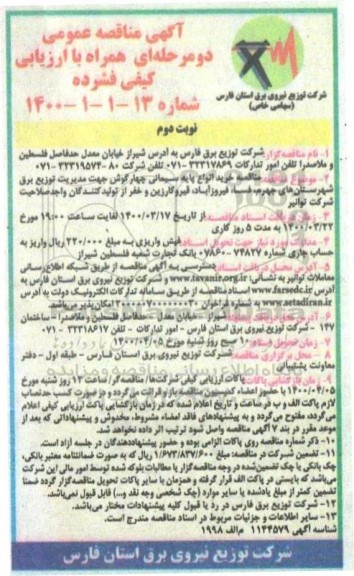 آگهی مناقصه عمومی
دومرحله‌ای همراه با ارزیابی
کیفی فشرده
شماره ۱۳-۱-۱-۱۴۰۰
شرکت توزیع نیروی برق استان فارس
(سهامی خاص)
نوبت دوم
۱- نام مناقصه‌گزار: شرکت توزیع برق فارس به آدرس شیراز خیابان معدل حدفاصل فلسطین
و ملاصدرا تلفن امور تدارکات ۳۲۳۱۷۸۶۹-۰۷۱ تلفن شرکت ۸۰-۳۲۳۱۹۵۷۴-۰۷۱
۲- موضوع مناقصه: مناقصه خرید انواع پایه سیمانی چهارگوش جهت مدیریت توزیع برق
شهرستان‌های جهرم، فسا، فیروزآباد، قیروکارزین و خفر از تولیدکنندگان واجدصلاحیت
شرکت توانیر
۳- زمان دریافت اسناد مناقصه: از تاریخ ۱۴۰۰/۰۳/۱۷ لغایت ساعت ۱۹:۰۰ مورخ
۱۴۰۰/۰۳/۲۲ به مدت ۵ روز کاری
۴- مدارک مورد نیاز جهت تحویل اسناد: فیش واریزی به مبلغ ۲۲۰/۰۰۰ ریال واریز به
حساب جاری شماره ۷۴۸۲۷-۰۷۸۶۰ بانک تجارت شعبه فلسطین شیراز
۵- آدرس محل دریافت اسناد: دسترسی به آگهی مناقصه از طریق شبکه اطلاع‌رسانی
معاملات توانیر به نشانی: www.tavanir.org.ir و شرکت توزیع نیروی برق استان فارس به
آدرس www.farsedc.ir اسناد مناقصه از طریق سامانه تدارکات الکترونیک دولت به آدرس
www.setadiran.ir به شماره فراخوان امکان پذیر می‌باشد.
شیراز - خیابان معدل - حدفاصل فلسطین و ملاصدرا - ساختمان
۱۴۷ - شرکت توزیع نیروی برق فارس - امور تدارکات - تلفن ۳۲۳۱۸۶۱۷-۰۷۱
۷- زمان تحویل اسناد: ۱۰ صبح روز شنبه مورخ ۱۴۰۰/۰۴/۰۵
۸- محل برگزاری مناقصه: شرکت توزیع نیروی برق استان فارس - طبقه اول - دفتر
معاونت پشتیبانی
۹- زمان بازگشایی پاکات: پاکات ارزیابی کیفی شرکت‌ها/ مناقصه‌گر/ ساعت ۱۲ روز شنبه مورخ
۱۴۰۰/۰۴/۰۵ با حضور اعضاء کمیسیون مناقصه باز و قرائت می‌گردد و در صورت کسب حدنصاب
لازم پاکت الف و ب در ساعت و تاریخ اعلام شده که در زمان بازگشایی پاکت ارزیابی کیفی اعلام
می‌گردد، مفتوح می‌گردد و به پیشنهادهای فاقد امضاء مشروط، مخدوش و پیشنهاداتی که بعد از
موعد مقرر در بند ۷ آگهی مناقصه واصل شود ترتیب اثر داده نخواهد شد.
۱۰- ذکر شماره مناقصه روی پاکات الزامی بوده و حضور پیشنهاددهندگان در جلسه آزاد است.
۱۱- تضمین شرکت در مناقصه: مبلغ ۱/۶۷۳/۸۳۷/۶۰۰ ریال که به صورت ضمانتنامه معتبر بانکی،
چک بانکی یا چک تضمین‌شده در وجه مناقصه‌گزار یا مطالبات بلوکه شده توسط امور مالی این شرکت
می‌باشد که بایستی در پاکت الف قرار گرفته و همزمان با سایر پاکات تحویل مناقصه‌گزار گردد ضمنا
تضمین کمتر از مبلغ یادشده یا سایر موارد (چک شخصی وجه نقد و...) قابل قبول نمی‌باشد.
۱۲- شرکت توزیع نیروی برق فارس در رد یا قبول کلیه پیشنهادات مختار می‌باشد.
۱۳- سایر اطلاعات و جزئیات مربوط در اسناد مناقصه مندرج است.
شناسه آگهی ۱۱۴۴۵۷۹ م‌الف ۱۹۹۸
شرکت توزیع نیروی برق استان فارس